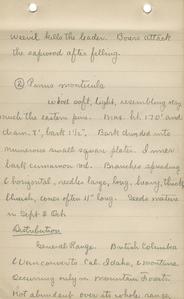 weevil kills the leader. Borers attack
the sapwood after felling.
② Pinus monticola
Wood soft, light, resembling very
much the eastern pine. Max. ht. 170' and
diam. 7', bark 1½". Bark divided into
numerous small square plates. Inner
bark cinnamon red. Branches spreading
horizontal, needles large, long, heavy, thick
bluish, cones often 11" long. Seeds mature
in Sept & Oct.
Distribution
General Range. British Columbia
& Vancouver to Cal. Idaho, & Montana
Occurring only in mountain forests.
Not abundant over its whole range